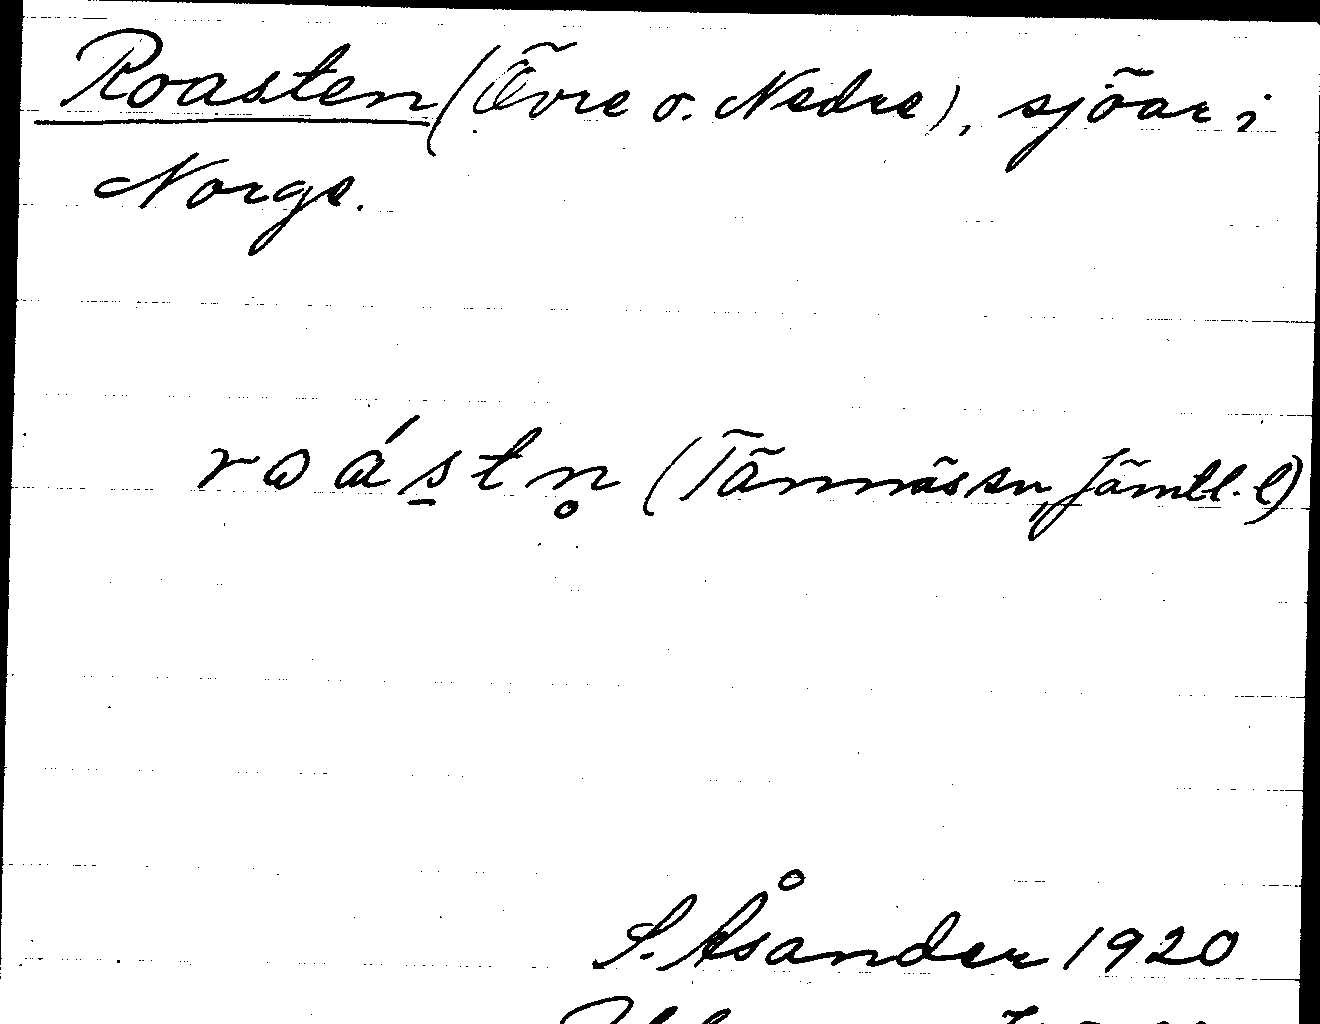 Roasten (Övre o. Nedre), sjöar i
Norge.
rɷás̠tn̥ (Tännäs sn, Jämtl. l)
S. Åsander 1920